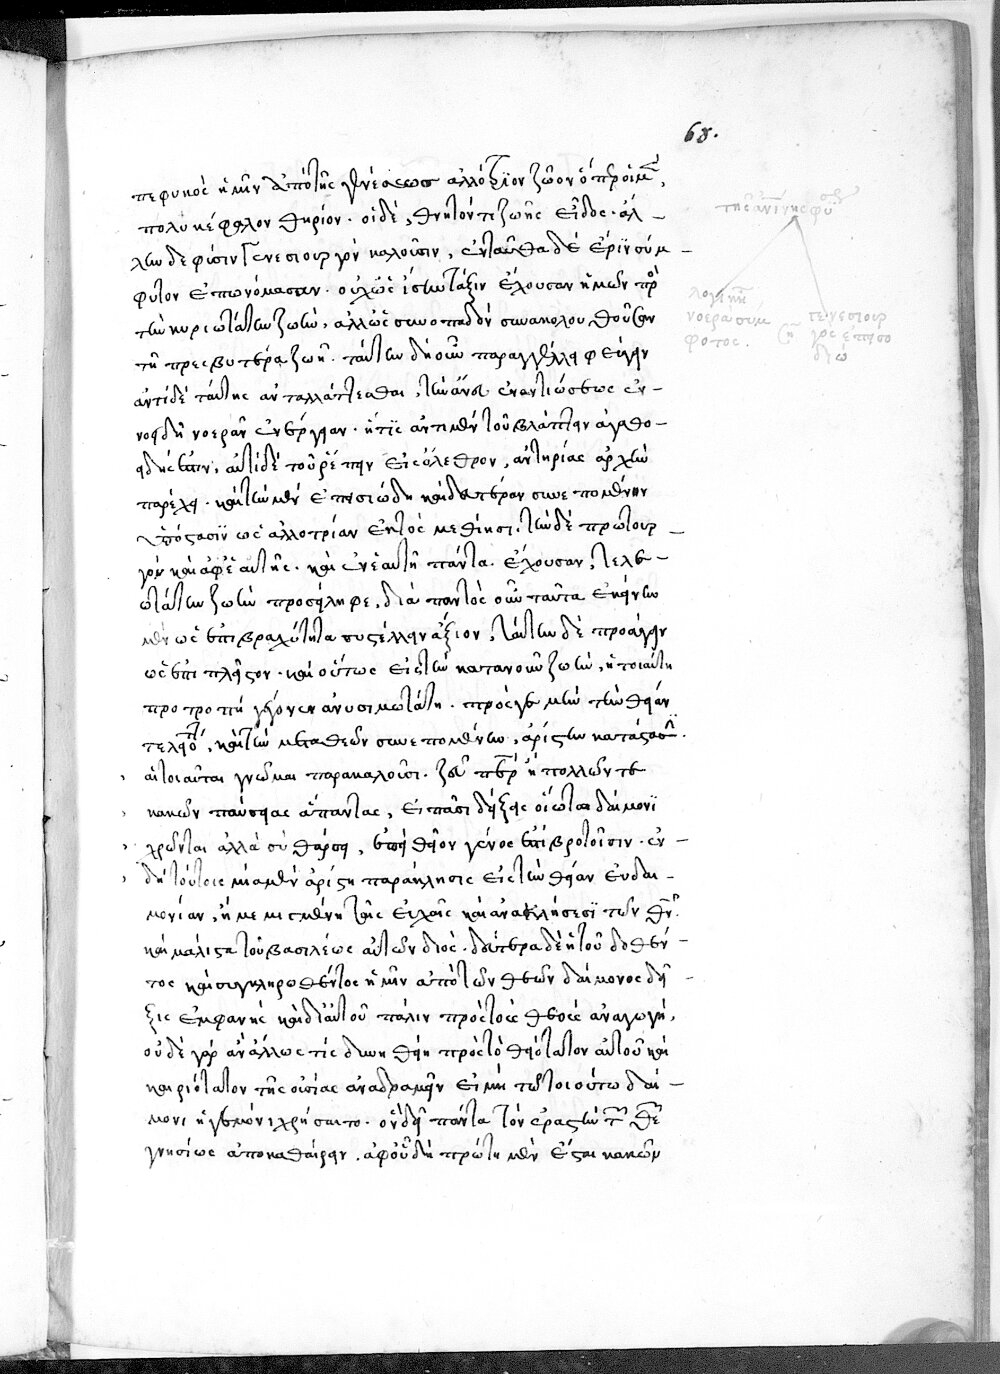 68.
πεφυκὸς ἡμῖν ἀπὸ τῆς γενέσεως ἀλλότριον ζῶον ὁ πρὸ ἡμ͂,
πολυκέφαλον θηρίον. οἱ δὲ, θνητόν τι ζωῆς εἶδος. ἄλ-
λην δὲ φύσιν γενεσιουργὸν καλοῦσιν, ἐνταῦθα δὲ ἔριν σύμ-
φυτον ἐπωνόμασαν. οὐχ ὡς ἴσην τάξιν ἔχουσαν ἡμῶν πρὸ
τὴν κυριωτάτην ζωὴν, ἀλλ' ὡς συνοπαδὸν συνακολουθοῦσαν
τῇ πρεσβυτέρα ζωῇ. ταύτην δὴ οὖν παραγγέλλει φεύγειν
ἀντὶ δὲ ταύτης ἀνταλλάττεσθαι, τὴν ἄνευ ἐναντιώσεως ἑν-
οειδῆ νοερὰν ἐνέργειαν. ἥτις ἀντὶ μὲν τοῦ βλάπτειν ἀγαθο-
ειδής ἐστιν, ἀντὶ δὲ τοῦ ῥέπειν εἰς ὄλεθρον, σωτηρίας ἀρχὴν
παρέχει. καὶ τὴν μὲν ἐπεισιώδη καὶ δευτέραν συνεπομένην
ὑπόστασιν ὡς ἀλλοτρίαν ἐκτὸς μεθίησι. τὴν δὲ πρωτουρ-
γὸν καὶ ἀφ' ἑαυτῆς. καὶ ἐν ἑαυτῇ πάντα ἔχουσαν, τελε-
ωτάτην ζωὴν προσείληφε, διὰ παντὸς οὖν ταῦτα ἐκείνην
μὲν ὡς ἐπὶ βραχύτητα συστέλλειν ἄξιον, ταύτην δὲ προάγειν
ὡς ἐπὶ πλεῖστον. καὶ οὕτως εἰς τὴν κατὰ νοῦν ζωὴν, ἡ τοιαύτη
προτροπὴ γέγονεν ἀνυσιμωτάτη. πρός γε μὴν τὴν θείαν
τελειότ, καὶ τὴν μετὰ θεῶν συνεπομένην, ἀρίστην κατάστασιν.
αἱ τοιαῦται γνῶμαι παρακαλοῦσι. ζεῦ πάτερ ἢ πολλῶν τε
κακῶν παύσειας ἅπαντας, εἰ πᾶσι δείξεις οἵῳ τῷ δαίμονι
χρῶνται ἀλλὰ σὺ θάρσει, ἐπεὶ θεῖον γένος ἐστὶ βροτοῖσιν. ἐν
δὴ τούτοις μία μὲν ἀρίστη παράκλησις εἰς τὴν θείαν εὐδαι-
μονίαν, ἡ μεμιγμένη ταῖς εὐχαῖς καὶ ἀνακλήσεσι τῶν θε͂.
καὶ μάλιστα τοῦ βασιλέως αὐτῶν διός. δευτέρα δὲ ἡ τοῦ δοθέν-
τος καὶ συγκληρωθέντος ἡμῖν ἀπὸ τῶν θεῶν δαίμονος δεῖ-
ξις ἐμφανὴς καὶ δι' αὐτοῦ πάλιν πρὸς τοὺς θεοὺς ἀναγωγή,
οὐδὲ γὰρ ἂν ἄλλως τίς δυνηθείη πρὸς τὸ θειότατον αὐτοῦ καὶ
καιριότατον τῆς οὐσίας ἀναδραμεῖν εἰ μὴ τῷ τοιούτω δαί-
μονι ἡγεμόνι χρήσαιτο. ὃν δεῖ πάντα τὸν ἐραστὴν τ͂ θε͂
γνησίως ἀποκαθαίρειν. ἀφ' οὗ δὴ πρώτη μὲν ἔσται κακῶν